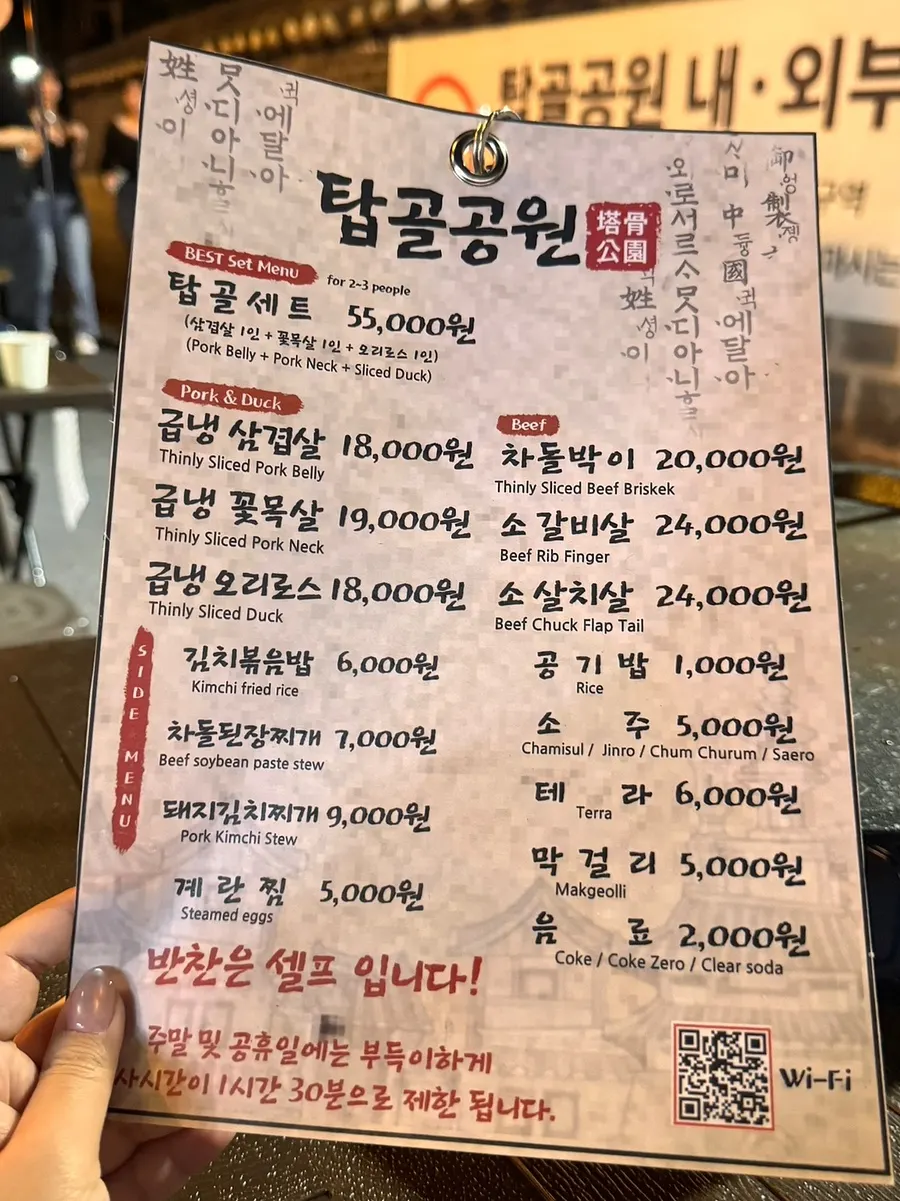 탑골공원 내·외부
구역
마시는
姓
셩
이
뭇
디
아
니
귁
에
달
아
御
製
中
國
귁
에
달
아
오
로
서
르
뭇
디
아
니
姓
셩
이
탑골공원
塔骨
公園
BEST Set Menu
for 2~3 people
탑골세트 55,000원
(삼겹살 1인 + 꽃목살 1인 + 오리로스 1인)
(Pork Belly + Pork Neck + Sliced Duck)
Pork & Duck
급냉 삼겹살 18,000원
Thinly Sliced Pork Belly
급냉 꽃목살 19,000원
Thinly Sliced Pork Neck
급냉 오리로스 18,000원
Thinly Sliced Duck
Beef
차돌박이 20,000원
Thinly Sliced Beef Briskek
소 갈비살 24,000원
Beef Rib Finger
소 살치살 24,000원
Beef Chuck Flap Tail
SIDE MENU
김치볶음밥 6,000원
Kimchi fried rice
차돌된장찌개 7,000원
Beef soybean paste stew
돼지김치찌개 9,000원
Pork Kimchi Stew
계란찜 5,000원
Steamed eggs
공기밥 1,000원
Rice
소주 5,000원
Chamisul / Jinro / Chum Churum / Saero
테라 6,000원
Terra
막걸리 5,000원
Makgeolli
음료 2,000원
Coke / Coke Zero / Clear soda
반찬은 셀프 입니다!
주말 및 공휴일에는 부득이하게
사시간이 1시간 30분으로 제한 됩니다.
Wi-Fi